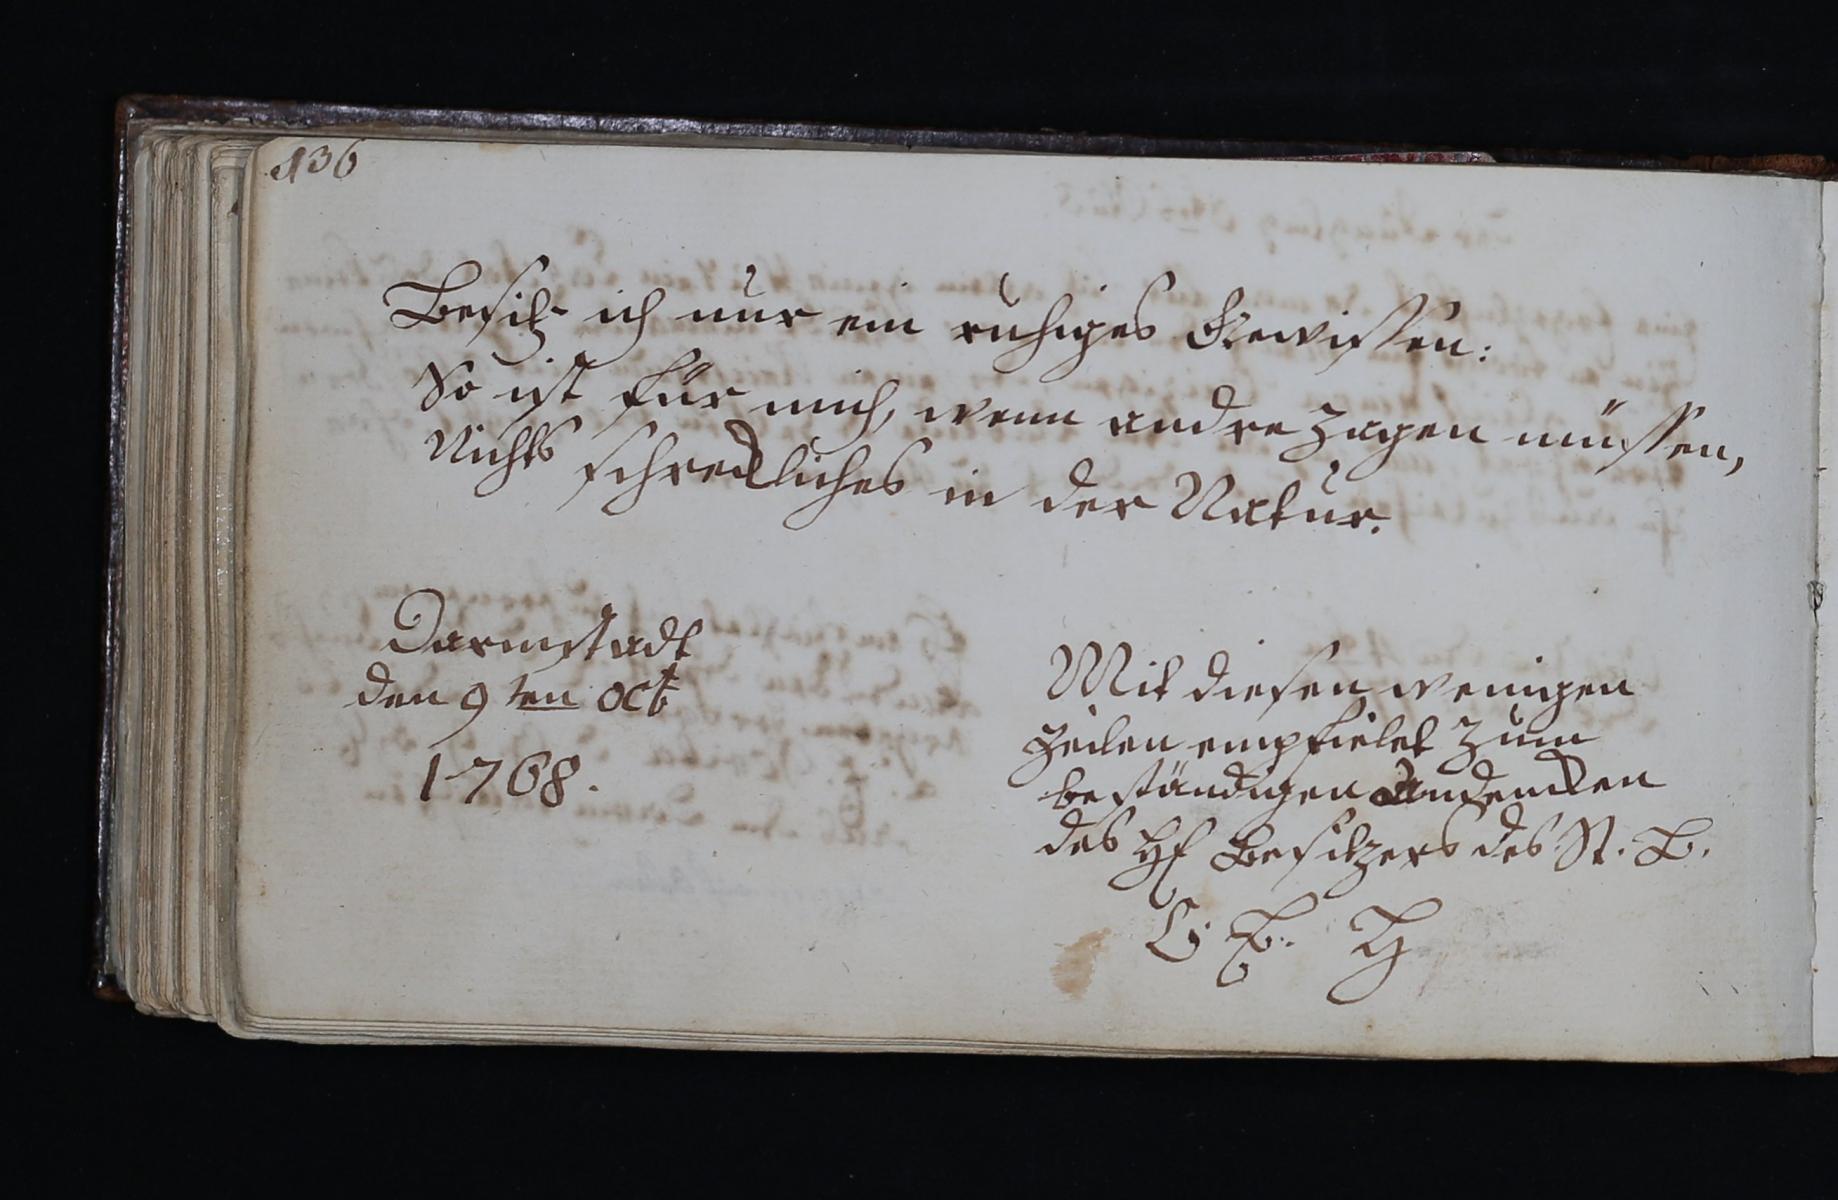 136
Besitz ich nur ein ruhiges Gewissen:
So ist für mich, wenn andre zagen müssen,
Nichts schreckliches in der Natur.
Darmstadt
den 9ten Oct
1768.
Mit diesen wenigen
Zeilen empfielet zum
beständigen Andencken
des H Besitzers des St. B.